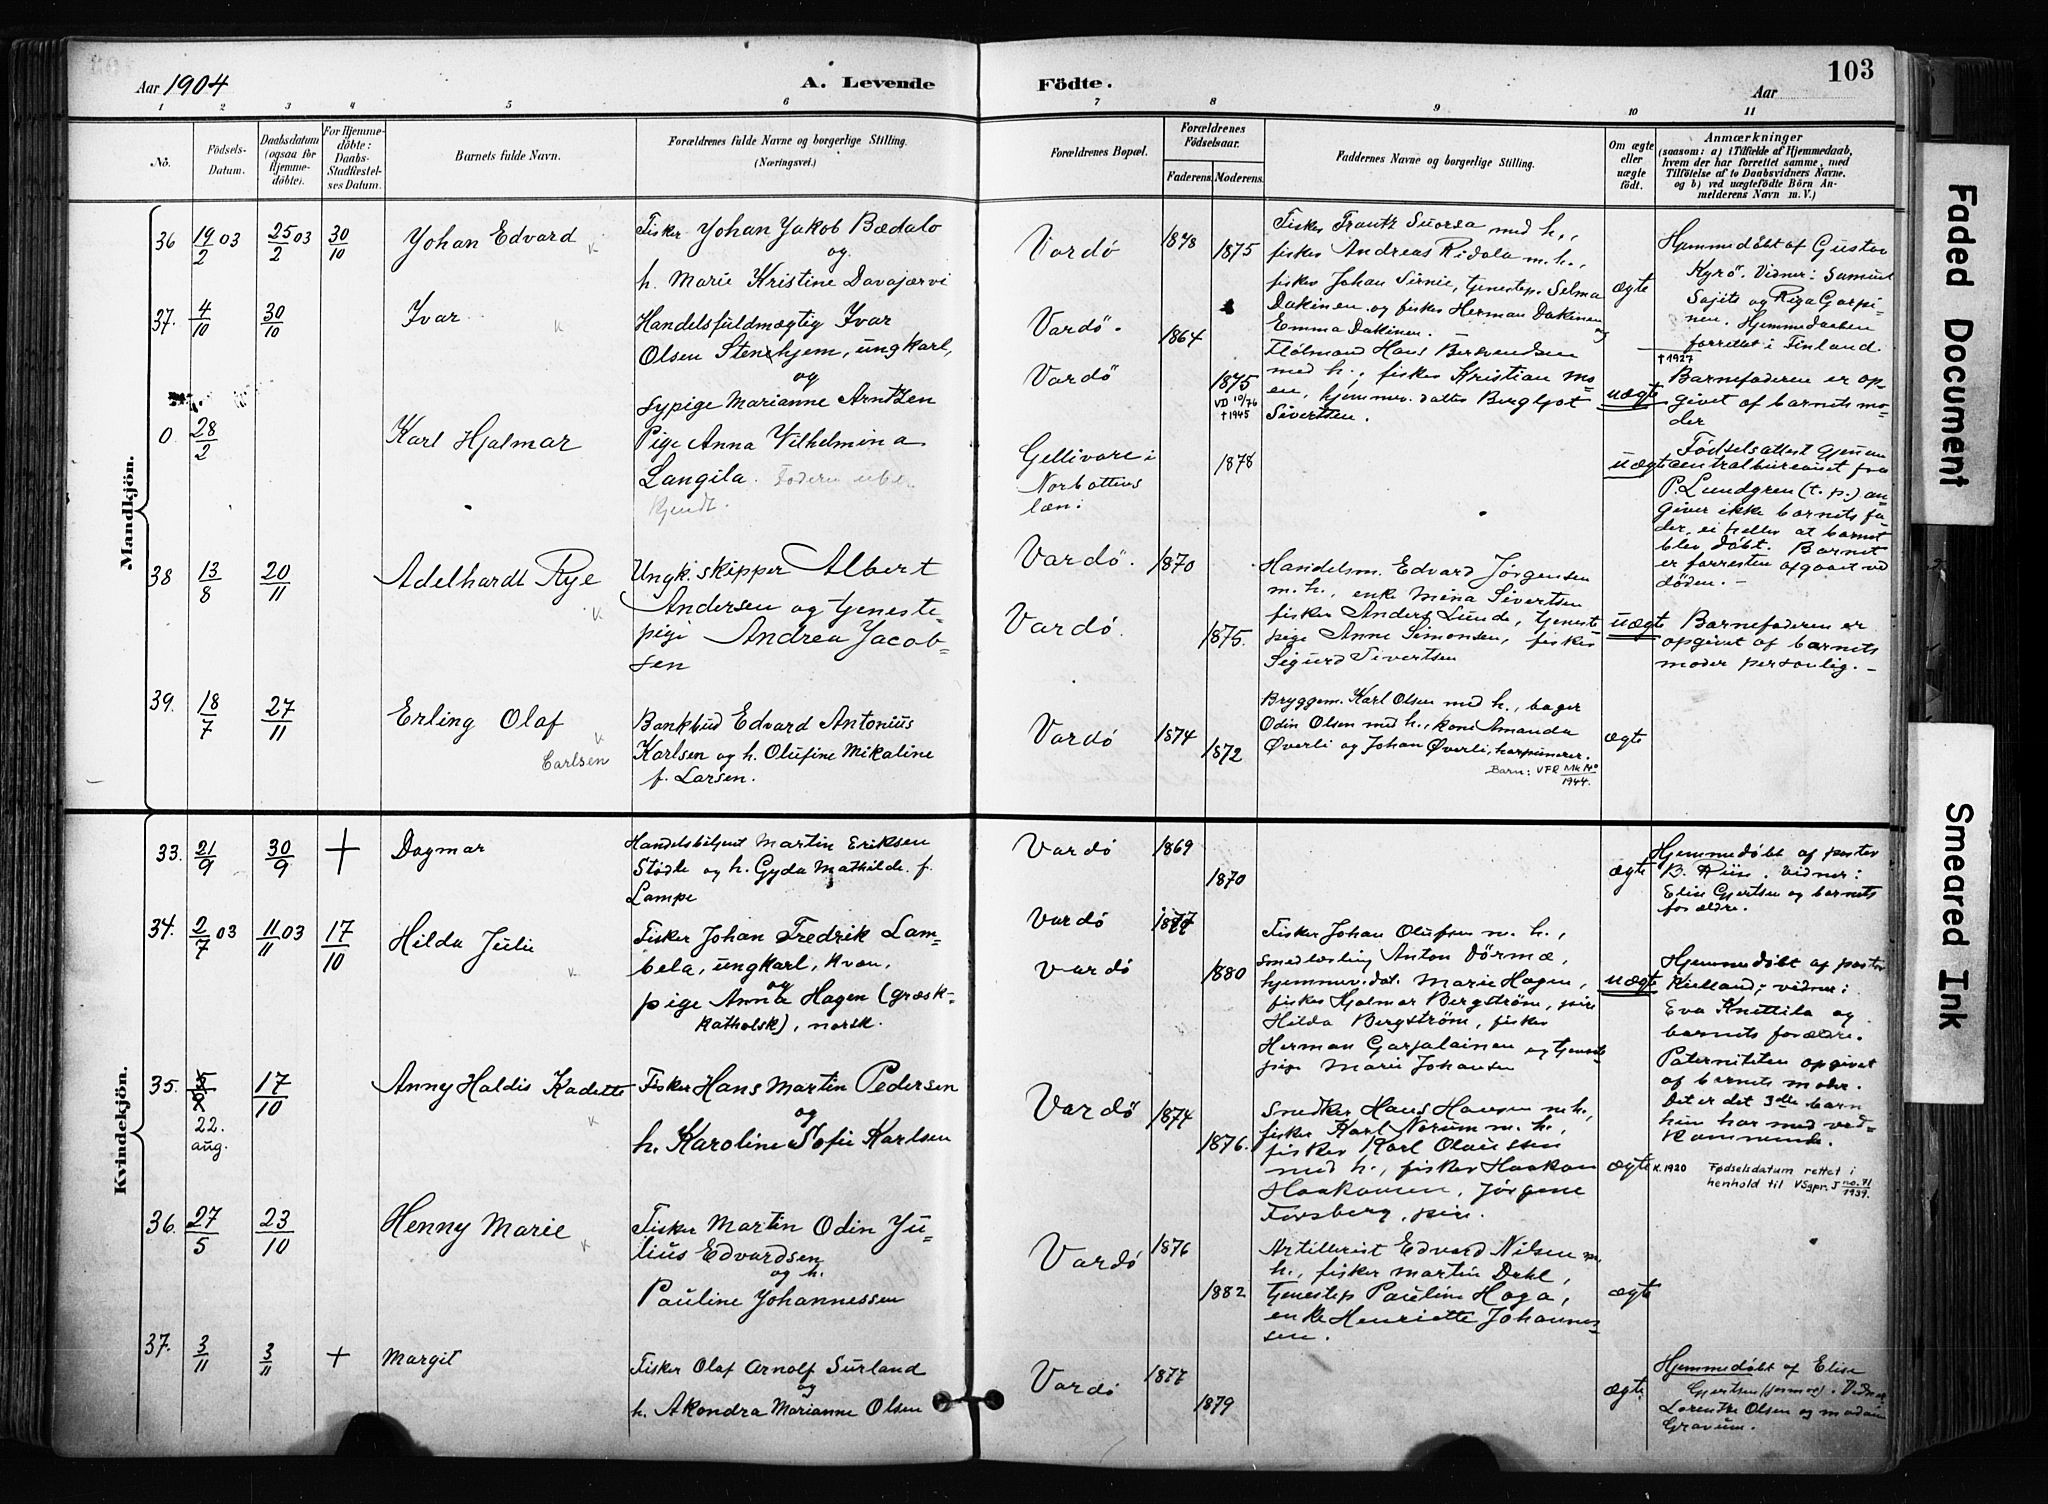 Aar 1904
A. Levende
Födte.
103
Aar
1 2 3 4 5 6 7 8 9 10 11
No.
Födsels-Datum.
Daabsdatum (ogsaa for Hjemme-döbte).
For Hjemme-döbte: Daabs-Stadfæstel-ses Datum.
Barnets fulde Navn.
Forældrenes fulde Navne og borgerlige Stilling. (Næringsvei.)
Forældrenes Bopæl.
Forældrenes Födselsaar.
Faderens. Moderens.
Faddernes Navne og borgerlige Stilling.
Om ægte eller uægte födt.
Anmærkninger
(saasom: a) i Tilfælde af Hjemmedaab, hvem der har forrettet samme, med Tilföielse af to Daabsvidners Navne, og b) ved uægtefödte Börn An-melderens Navn m. V.)
Mandkjön.
36 19/2 03 25/2 03 30/10
Johan Edvard
Fisker Johan Jakob Bædalo
og
h. Marie Kristine Davajærvi
Vardø
1878
1875
Fisker Frantz Suorsa med h.,
fisker Andreas Ridola m. h.,
fisker Johan Sirnie, tjenestep. Selma
Dakinen og fisker Herman Dakinen og
Emma Dakinen.
ægte
Hjemmedøbt af Gustav
Kyrö. Vidner: Samuel
Sajets og Riga Garpi-
nen. Hjemmedaaben
forrettet i Finland.
37. 4/10 30/10
Ivar
Handelsfuldmægtig Ivar
Olsen Stenehjem, ungkarl,
og
sypige Marianne Arntzen
Vardø.
Vardø
1864
1875
VD 10/76
† 1945
Flølmand Hans Berntzendsen
med h., fisker Kristian Mo-
en, hjemmev. datter Bergljot
Sivertsen.
uægte
† 1927
Barnefaderen er op-
givet af barnets mo-
der
0 28/2
Karl Hjalmar
Pige Anna Vilhelmina
Langila. Faderen ube-
kjendt.
Gellivare i
Norbottens
læn.
1878
uægte
Fødselsattest gjennem
centralbureauet fra
P. Lundgren (t. p.) an-
giver ikke barnets fa-
der, ei heller at barnet
blev døbt. Barnet
er forresten opgaaet ved
døden. –
38 13/8 20/11
Adelhardt Rye
Ungk. skipper Albert
Andersen og tjeneste-
pige Andrea Jacob-
sen
Vardø.
Vardø.
1870
1875.
Handelsm. Edvard Jørgensen
m. h., enke Mina Sivertsen
fisker Anders Lunde, tjenest
pige Anne Simonsen, fisker
Sigurd Sivertsen
uægte
Barnefaderen er
opgivet af barnets
moder personlig. –
39. 18/7 27/11
Erling Olaf
Carlsen
Bankbud Edvard Antonius
Karlsen og h. Olufine Mikaline
f. Larsen.
Vardø
1874
1872
Bryggem. Karl Olsen med h., bager
Odin Olsen med h., kone Amanda
Øverli og Johan Øverli, harpunerer.
Barn: VFR
1944.
ægte
Kvindekjön.
33. 21/9 30/9 +
Dagmar
Handelsbetjent Martin Eriksen
Stødle og h. Gyda Mathilde f.
Lampe
Vardø
1869
1870
ægte
Hjemmedøbt af pastor
B. Riise. Vidner:
Elise Gjertsen og barnets
forældre.
34. 2/7 03 11/11 03 17/10
Hilda Julie
Fisker Johan Fredrik Lam-
bela, ungkarl, kvæn,
og
pige Anna Hagen (græsk-
katholsk), norsk.
Vardø
Vardø
1877
1880
Fisker Johan Olufsen m. h.,
smedlærling Anton Dørmæ,
hjemmev. dat. Marie Hagen,
fisker Hjalmar Bergstrøm, pike
Hilda Bergstrøm, fisker
Herman Garjalainen og tjeneste
pige Marie Johansen
uægte
Hjemmedøbt af pastor
Kielland; vidner:
Eva Knittila og
barnets forældre.
Paterniteten opgivet
af barnets moder.
Det er det 3die barn
hun har med ved-
kommende.
35. 17/10
22.
aug.
Anny Haldis Kadette
Fisker Hans Martin Pedersen
og
h. Karoline Sofie Karlsen
Vardø
1874
1876.
Snedker Hans Hansen m. h.,
fisker Karl Norum m. h.,
fisker Karl Olaussen
med h., fisker Haakon
Haakonsen, Jørgine
Forsberg, pike.
ægte
K. 1920 Fødselsdatum rettet i
henhold til VSgpr. J no. 71/1939.
36. 27/5 23/10
Henny Marie
Fisker Martin Odin Ju-
lius Edvardsen
og h.
Pauline Johannessen
Vardø
1876
1882
Artillerist Edvard Nilsen m.
h., fisker Martin Dahl,
tjenestep Pauline Haga,
enke Henriette Johannes-
sen.
ægte
37. 3/11 3/11 +
Margit
Fisker Olaf Arnolf Surland
og
h. Akondra Marianne Olsen
Vardø
1877
1879
ægte
Hjemmedøbt af Elise
Gjertsen (jormor). Vidner
Lorentze Olsen og madam
Gravum.
Faded Document
Smeared Ink